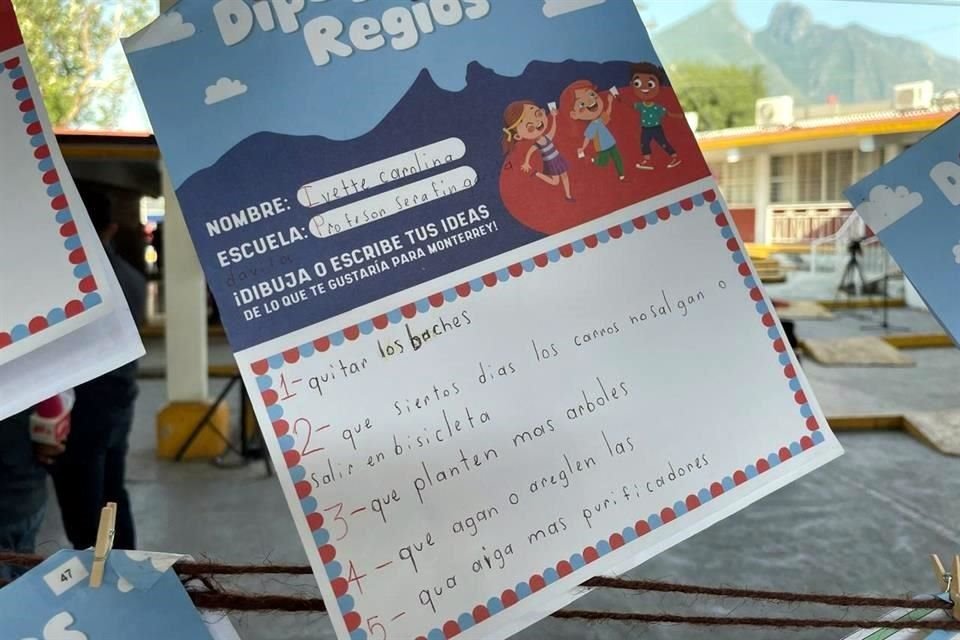 Regios
NOMBRE: Ivette carolina
ESCUELA: Profeson Serafin a
davila
¡DIBUJA O ESCRIBE TUS IDEAS
DE LO QUE TE GUSTARÍA PARA MONTERREY!
1-quitar los baches
2- que siertos dias los carros no salgan o
salir en bisicleta
3-que planten mas arboles
4-que agan o areglen las
5- qua aiga mas purificadores
47